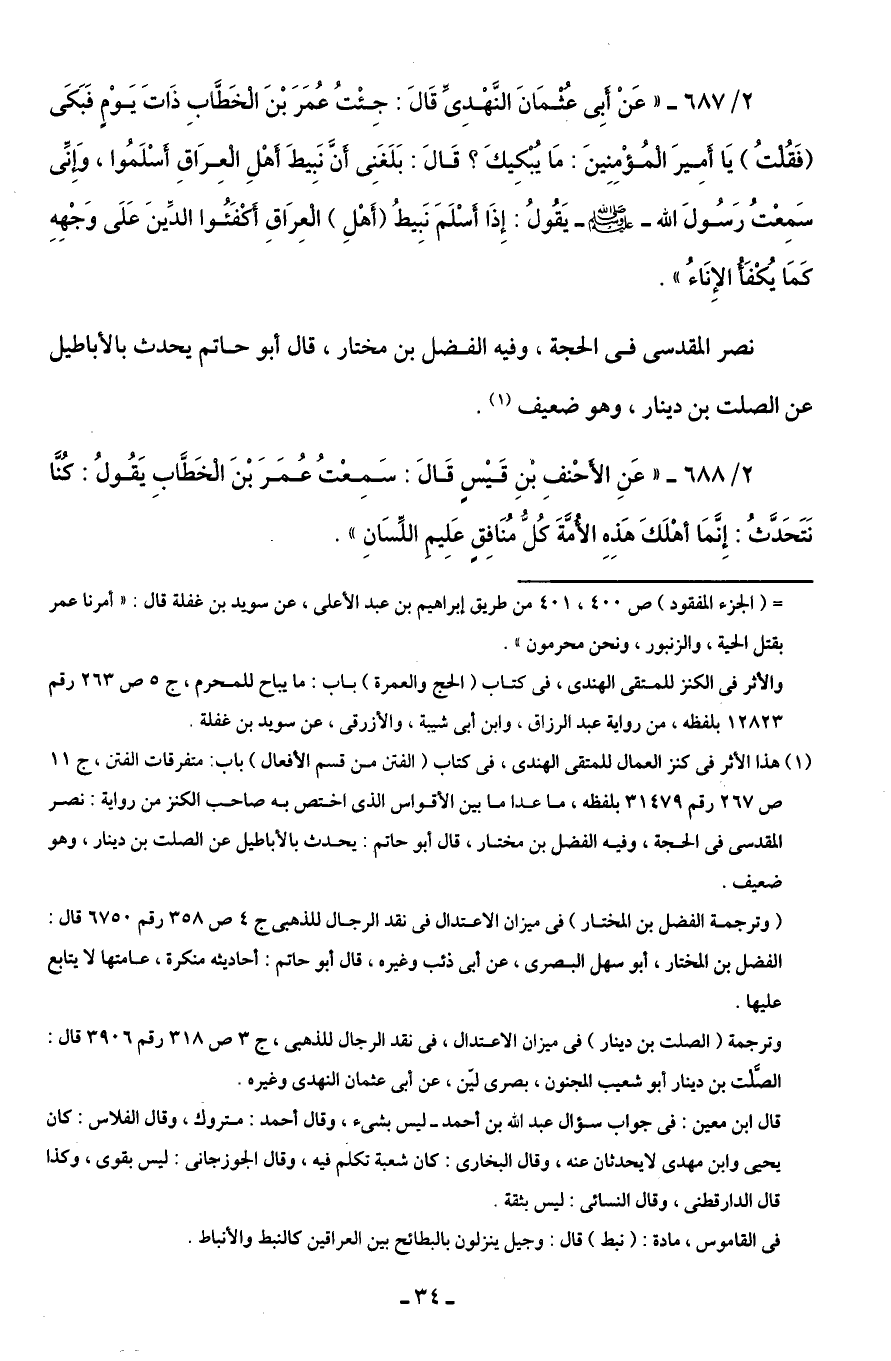 ٢/ ٦٨٧ ـ « عَنْ أَبِى عُثْمَانَ النَّهْدِىِّ قَالَ : جِئْتُ عُمَرَ بْنَ الْخَطَّابِ ذَاتَ يَوْمٍ فَبَكَى
(فَقُلْتُ ) يَا أَمِيرَ الْمُؤْمِنِينَ : مَا يُبْكِيكَ ؟ قَالَ : بَلَغَنِى أَنَّ نَبِيطَ أَهْلِ الْعِرَاقِ أَسْلَمُوا ، وَإِنِّى
سَمِعْتُ رَسُولَ الله ـ ﷺ ـ يَقُولُ : إِذَا أَسْلَمَ نَبِيطُ (أَهْلِ ) الْعِرَاقِ أَكْفَئُوا الدِّينَ عَلَى وَجْهِهِ
كَمَا يُكْفَأُ الإِنَاءُ » .
نصر المقدسى فى الحجة ، وفيه الفضل بن مختار ، قال أبو حاتم يحدث بالأباطيل
عن الصلت بن دينار ، وهو ضعيف (١) .
٢/ ٦٨٨ ـ « عَنِ الأَحْنِفِ بْنِ قَيْسٍ قَالَ : سَمِعْتُ عُمَرَ بْنَ الْخَطَّابِ يَقُولُ : كُنَّا
نَتَحَدَّثُ : إِنَّمَا أَهْلَكَ هَذِهِ الأُمَّةَ كُلُّ مُنَافِقٍ عَلِيمِ اللِّسَانِ » .
= ( الجزء المفقود ) ص ٤٠٠ ، ٤٠١ من طريق إبراهيم بن عبد الأعلى ، عن سويد بن غفلة قال : « أمرنا عمر
بقتل الحية ، والزنبور ، ونحن محرمون » .
والأثر فى الكنز للمتقى الهندى ، فى كتاب ( الحج والعمرة ) باب : ما يباح للمحرم ، ج ٥ ص ٢٦٣ رقم
١٢٨٢٣ بلفظه ، من رواية عبد الرزاق ، وابن أبى شيبة ، والأزرقى ، عن سويد بن غفلة .
(١) هذا الأثر فى كنز العمال للمتقى الهندى ، فى كتاب ( الفتن من قسم الأفعال ) باب: متفرقات الفتن ، ج ١١
ص ٢٦٧ رقم ٣١٤٧٩ بلفظه ، ما عدا ما بين الأقواس الذى اختص به صاحب الكنز من رواية : نصر
المقدسى فى الحجة ، وفيه الفضل بن مختار ، قال أبو حاتم : يحدث بالأباطيل عن الصلت بن دينار ، وهو
ضعيف .
( وترجمة الفضل بن المختار ) فى ميزان الاعتدال فى نقد الرجال للذهبى ج ٤ ص ٣٥٨ رقم ٦٧٥٠ قال :
الفضل بن المختار ، أبو سهل البصرى ، عن أبى ذئب وغيره ، قال أبو حاتم : أحاديثه منكرة ، عامتها لا يتابع
عليها .
وترجمة ( الصلت بن دينار ) فى ميزان الاعتدال ، فى نقد الرجال للذهبى ، ج ٣ ص ٣١٨ رقم ٣٩٠٦ قال :
الصَّلْت بن دينار أبو شعيب المجنون ، بصرى ليّن ، عن أبى عثمان النهدى وغيره .
قال ابن معين : فى جواب سؤال عبد الله بن أحمد ـ ليس بشىء ، وقال أحمد : متروك ، وقال الفلاس : كان
يحيى وابن مهدى لايحدثان عنه ، وقال البخارى : كان شعبة تكلم فيه ، وقال الجوزجانى : ليس بقوى ، وكذا
قال الدارقطنى ، وقال النسائى : ليس بثقة .
فى القاموس ، مادة : ( نبط ) قال : وجيل ينزلون بالبطائح بين العراقين كالنبط والأنباط .
ـ ٣٤ ـ